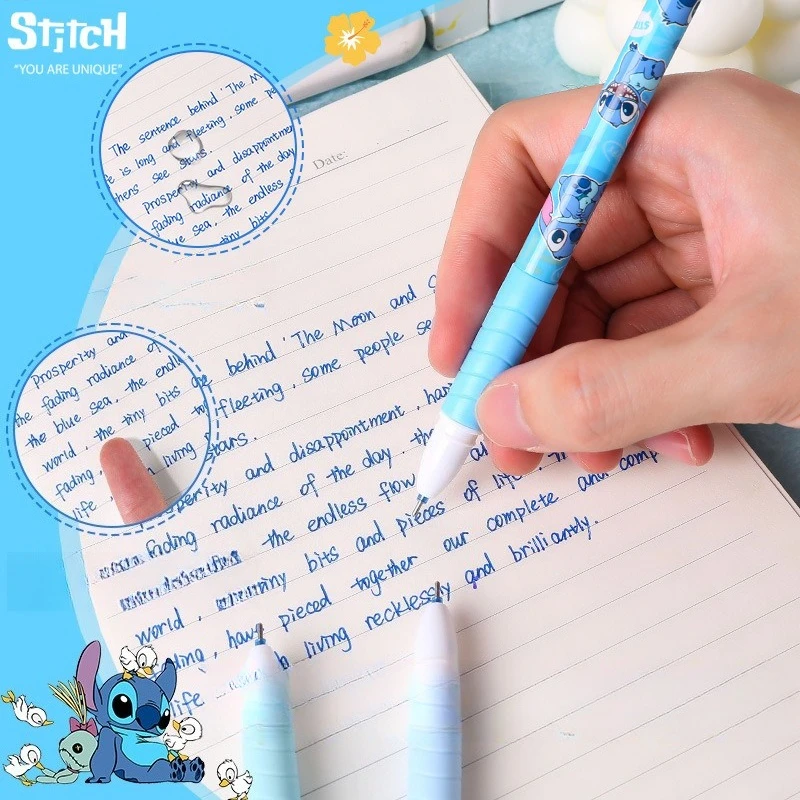 STITCH
"YOU ARE UNIQUE"
The sentence behind 'The M
e is long and fleeting, some pe
thens see stars.
Prosperity and disappointmen
fading radiance of the day
ue sea, the endless
tiny bits
Date:
Prosperity and
the fading radiance of
the blue sea, the endl
world, the tiny bits
fading, pieced to
life living
behind 'The Moon and S
fleeting, some people se
stars.
sperity and disappointment, ha
fading radiance of the day, the
the endless flow
world, bits and pieces of life, th
ding, have pieced together our complete and comp
life living recklessly and brilliantly.